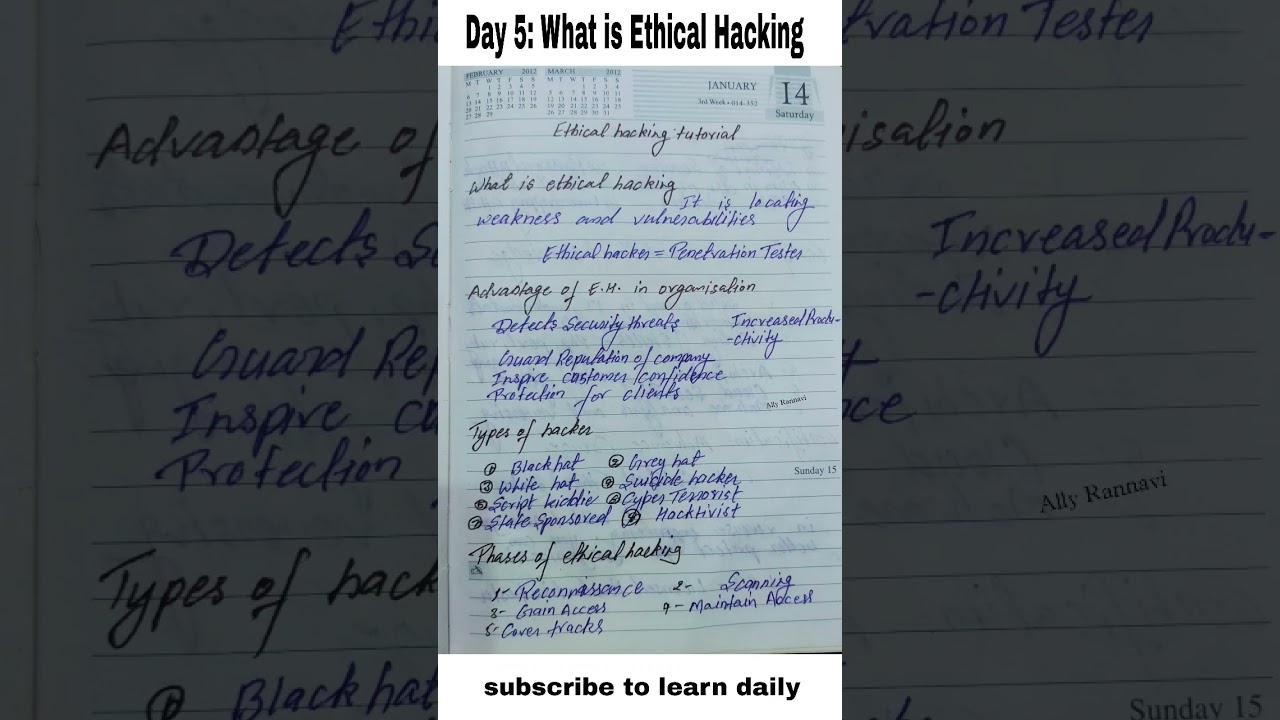 Day 5: What is Ethical Hacking
FEBRUARY 2012 MARCH 2012
M T W T F S S M T W T F S S
JANUARY 14
3rd Week • 014-352
Saturday
Ethical hacking tutorial
What is ethical hacking
It is locating
weakness and vulnerabilities
Ethical hacker = Penetration Tester
Advantage of E.H. in organisation
Detects Security threats
Increased Produ-
-ctivity
Guard Reputation of company
Inspire customer confidence
Protection for clients
Ally Rannavi
Types of hacker
① Black hat ② Grey hat
③ White hat ④ Suicide hacker
Sunday 15
⑤ Script kiddie ⑥ Cyper Terrorist
⑦ State Sponsored ⑧ Hacktivist
Phases of ethical hacking
1- Reconnissance 2- Scanning
3- Gain Access 4- Maintain Access
5- Cover tracks
subscribe to learn daily